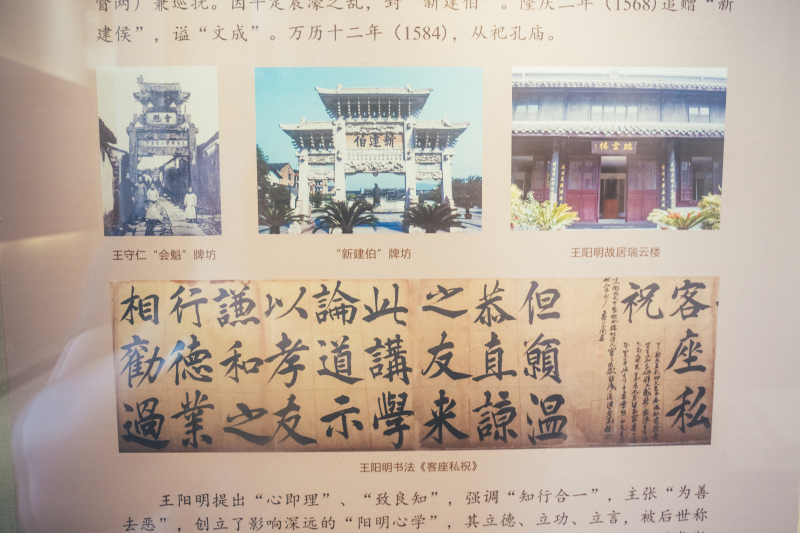 督两广兼巡抚。因平定宸濠之乱，封“新建伯”。隆庆二年（1568）追赠“新
建侯”，谥“文成”。万历十二年（1584），从祀孔庙。
會魁
新建伯
瑞雲樓
王守仁“会魁”牌坊
“新建伯”牌坊
王阳明故居瑞云楼
客座私
祝
但願温
恭直諒
之友来
此講學
論道示
以孝友
謙和之
行德業
相勸過
王阳明书法《客座私祝》
王阳明提出“心即理”、“致良知”，强调“知行合一”，主张“为善
去恶”，创立了影响深远的“阳明心学”，其立德、立功、立言，被后世称